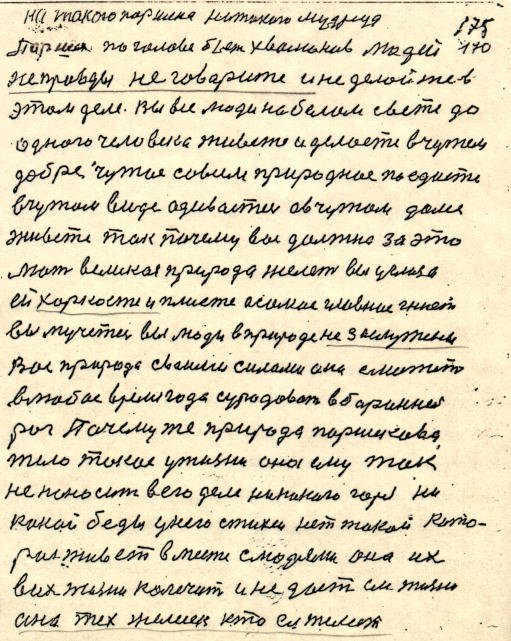 на такого паршика никакого мудруда
175
Паршек по голове бьет хвастаков людей
170
неправды не говарите и не делойте в
этом деле. Вы все люди на белом свете до
одного человека живете и делаете в чужем
добре, чужое совсим природное поедаете
в чужом виде одиваетеи в чужом доме
живете так почему вас должна за это
мат великая природа желет вы целиза
ей харкаете и плюете а самое главное гниет
вы мучетеи вы люди в природе не заслужены
Вас природа сваими силами она сможет
в любое время года суродоват в бараний
рог Почему же природа паршекова
тело такое у жизни она ему так
не наносит в его деле никакого горя ни
какой беды у него стихеи нет такой кото-
рая живет вместе с людями она их
всих жизни колечит и не дает им жизни
она тех жалеет кто ей жалеет